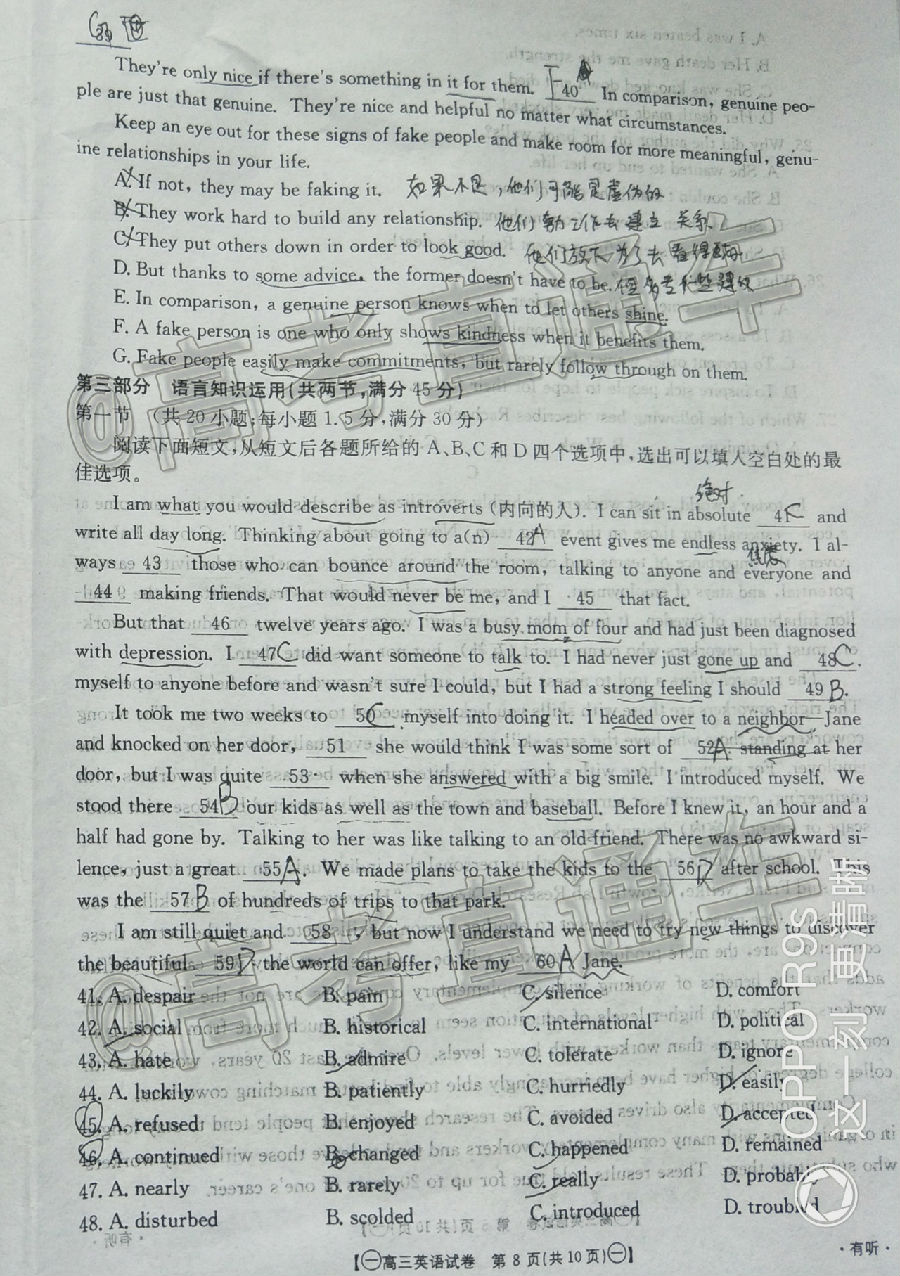 They're only nice if there's something in it for them. 40 In comparison, genuine peo-
ple are just that genuine. They're nice and helpful no matter what circumstances.
Keep an eye out for these signs of fake people and make room for more meaningful, genu-
ine relationships in your life.
A. If not, they may be faking it. 如果不是,他们可能是虚伪的
B. They work hard to build any relationship. 他们努工作去建立关系
C. They put others down in order to look good. 他们放下 为了去看得
D. But thanks to some advice, the former doesn't have to be.
E. In comparison, a genuine person knows when to let others shine.
F. A fake person is one who only shows kindness when it benefits them.
G. Fake people easily make commitments, but rarely follow through on them.
第三部分 语言知识运用(共两节,满分45分)
第一节 (共20小题;每小题1.5分,满分30分)
阅读下面短文,从短文后各题所给的A、B、C和D四个选项中,选出可以填入空白处的最
佳选项。
绝对
I am what you would describe as introverts (内向的人). I can sit in absolute 41 C and
write all day long. Thinking about going to a(n) 42 A event gives me endless anxiety. I al-
焦虑
ways 43 those who can bounce around the room, talking to anyone and everyone and
44 making friends. That would never be me, and I 45 that fact.
But that 46 twelve years ago. I was a busy mom of four and had just been diagnosed
with depression. I 47 C did want someone to talk to. I had never just gone up and 48 C
myself to anyone before and wasn't sure I could, but I had a strong feeling I should 49 B.
It took me two weeks to 50 C myself into doing it. I headed over to a neighbor Jane
and knocked on her door, 51 she would think I was some sort of 52 A standing at her
door, but I was quite 53 when she answered with a big smile. I introduced myself. We
stood there 54 B our kids as well as the town and baseball. Before I knew it, an hour and a
half had gone by. Talking to her was like talking to an old friend. There was no awkward si-
lence, just a great 55 A. We made plans to take the kids to the 56 D after school. This
was the 57 B of hundreds of trips to that park.
I am still quiet and 58 , but now I understand we need to try new things to discover
the beautiful 59 D the world can offer, like my 60 A Jane.
41. A. despair B. pain C. silence D. comfort
42. A. social B. historical C. international D. political
43. A. hate B. admire C. tolerate D. ignore
44. A. luckily B. patiently C. hurriedly D. easily
45. A. refused B. enjoyed C. avoided D. accepted
46. A. continued B. changed C. happened D. remained
47. A. nearly B. rarely C. really D. probably
48. A. disturbed B. scolded C. introduced D. troubled
【㊀高三英语试卷 第8页(共10页)㊀】
·有听·
@高考直通车
@高考直通车
OPPO R9s
这一刻 更清晰